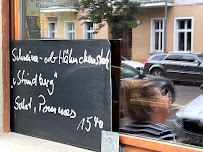 Schweine- od. Hähnchensteak
"Strindberg"
Salat, Pommes
15⁴⁰